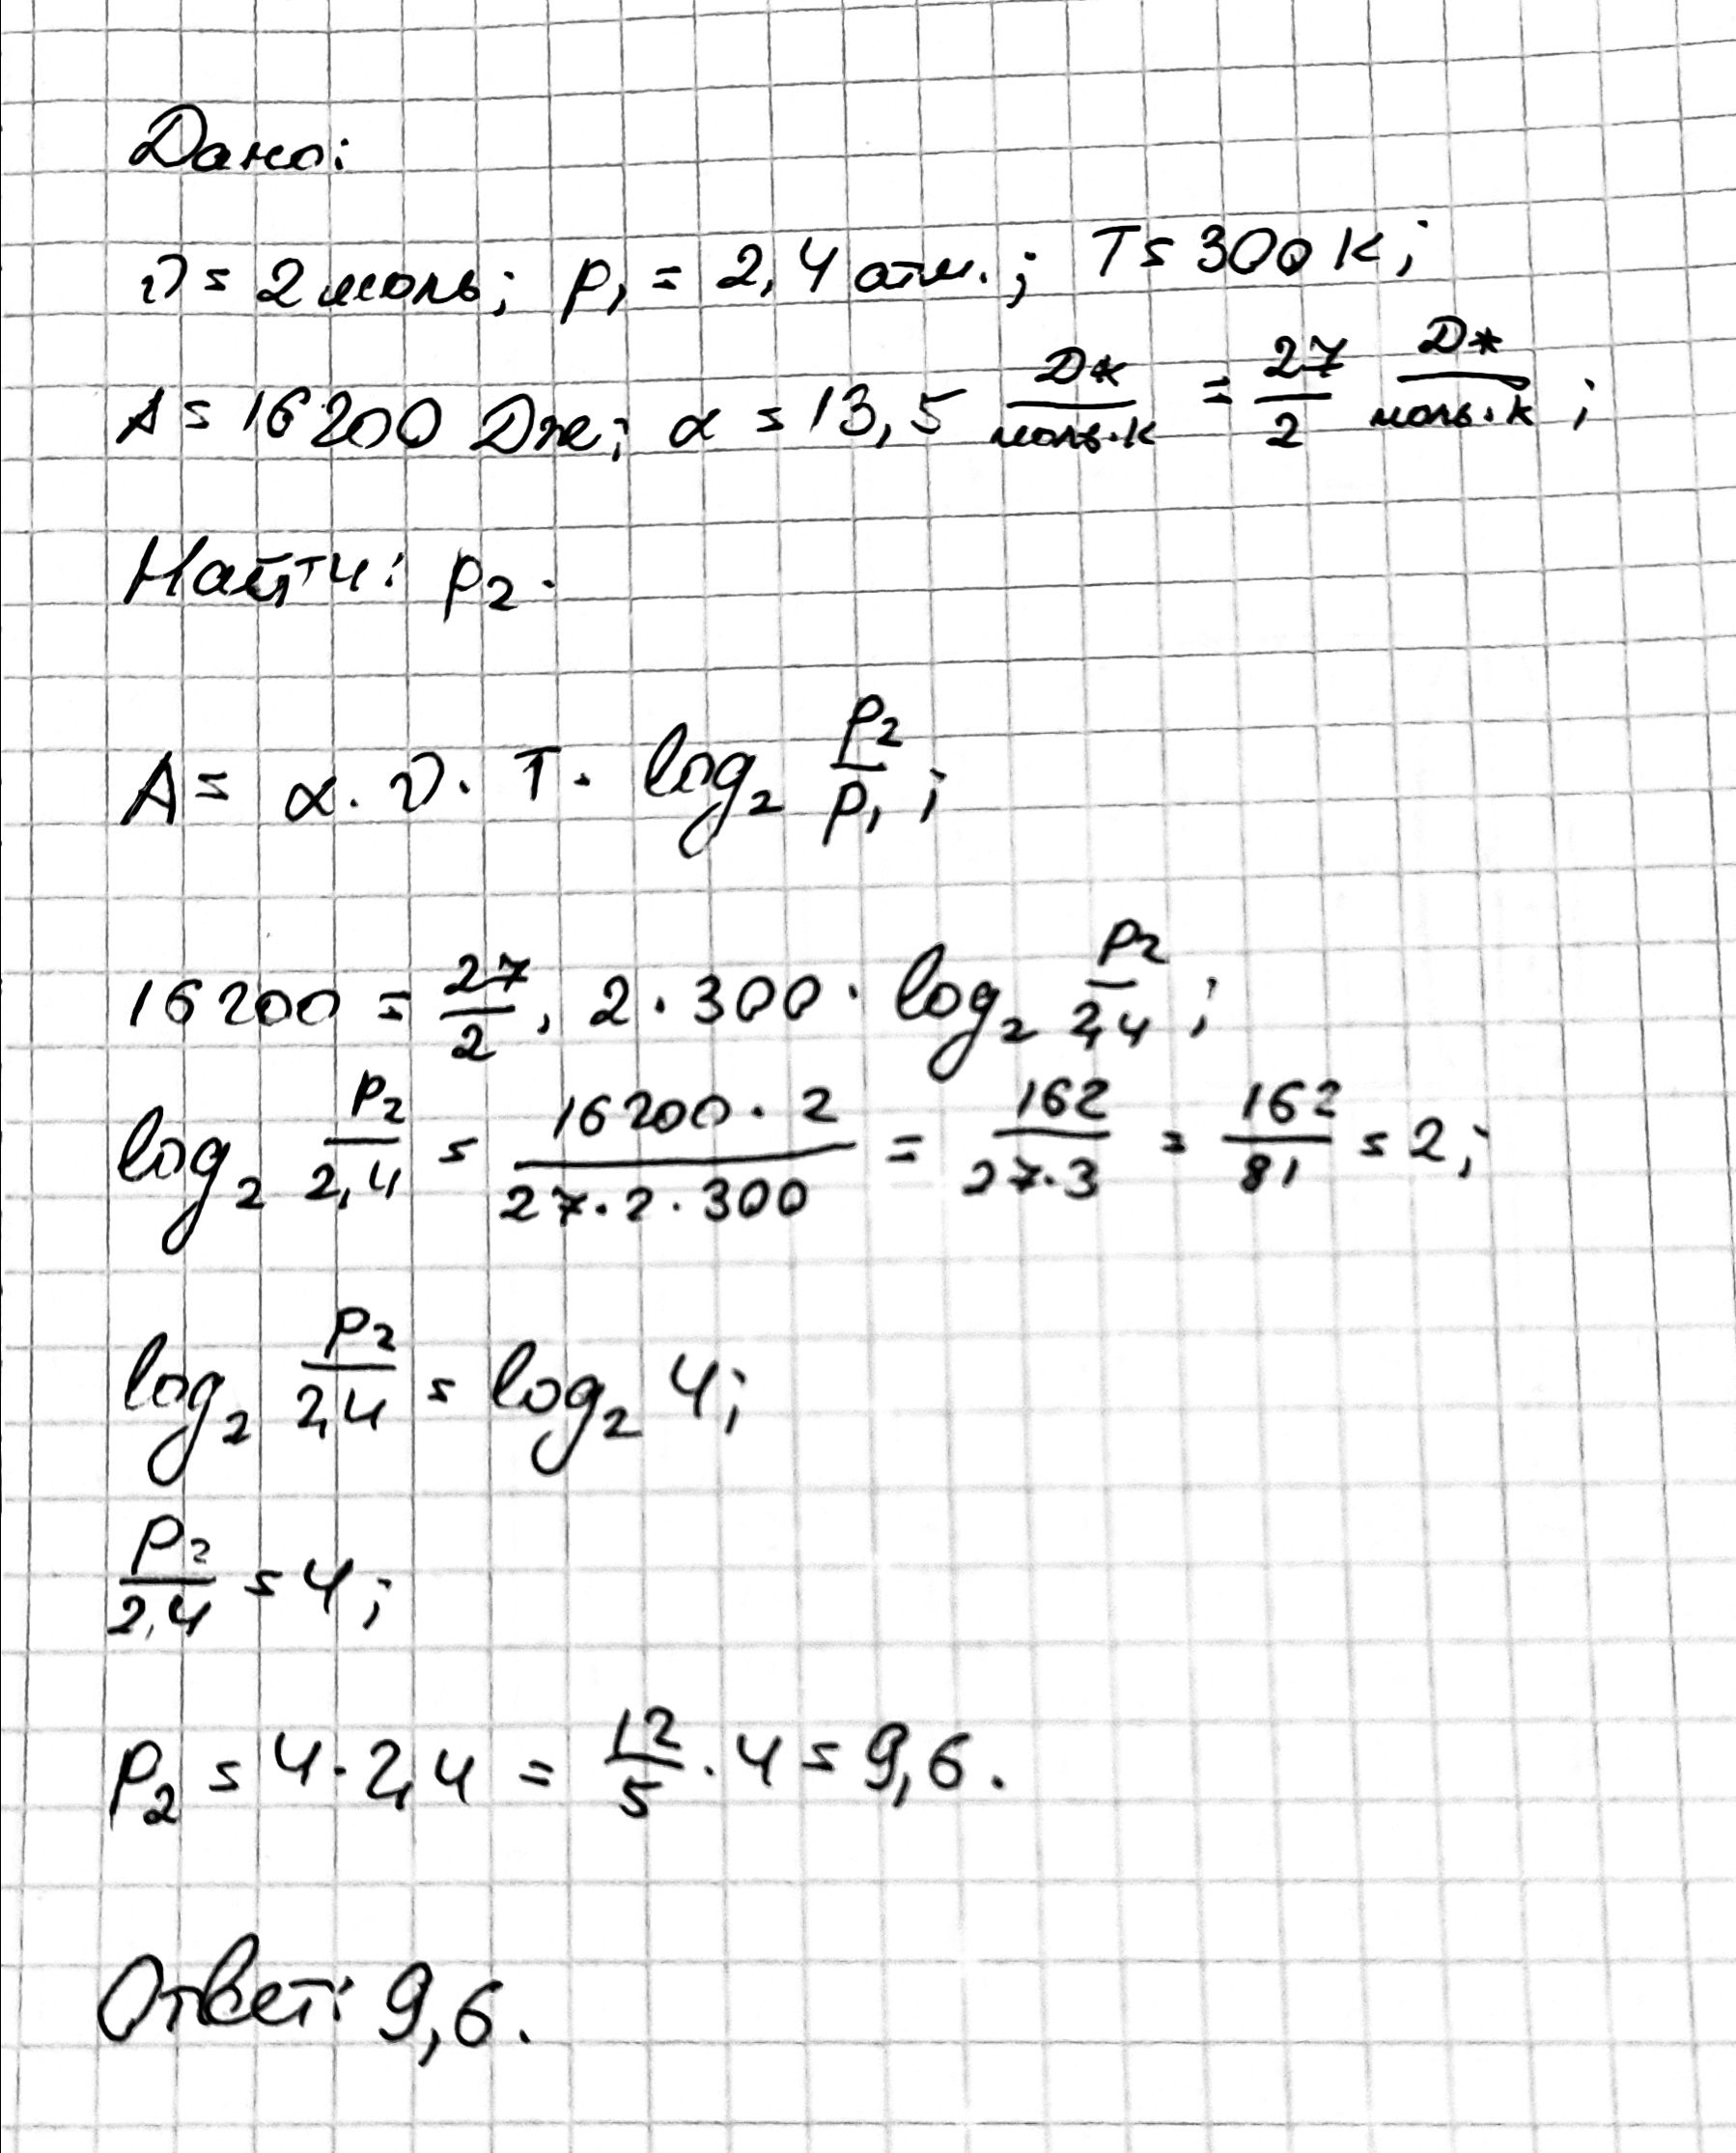 Дано:
ν = 2 моль; p₁ = 2,4 атм.; T = 300 К;
A = 16200 Дж; α = 13,5 Дж/моль·К = 27/2 Дж/моль·К;
Найти: p₂.
A = α · ν · T · log₂ p₂/p₁;
16200 = 27/2 · 2 · 300 · log₂ p₂/2,4;
log₂ p₂/2,4 = 16200 · 2/27 · 2 · 300 = 162/27·3 = 162/81 = 2;
log₂ p₂/2,4 = log₂ 4;
p₂/2,4 = 4;
p₂ = 4 · 2,4 = 12/5 · 4 = 9,6.
Ответ: 9,6.